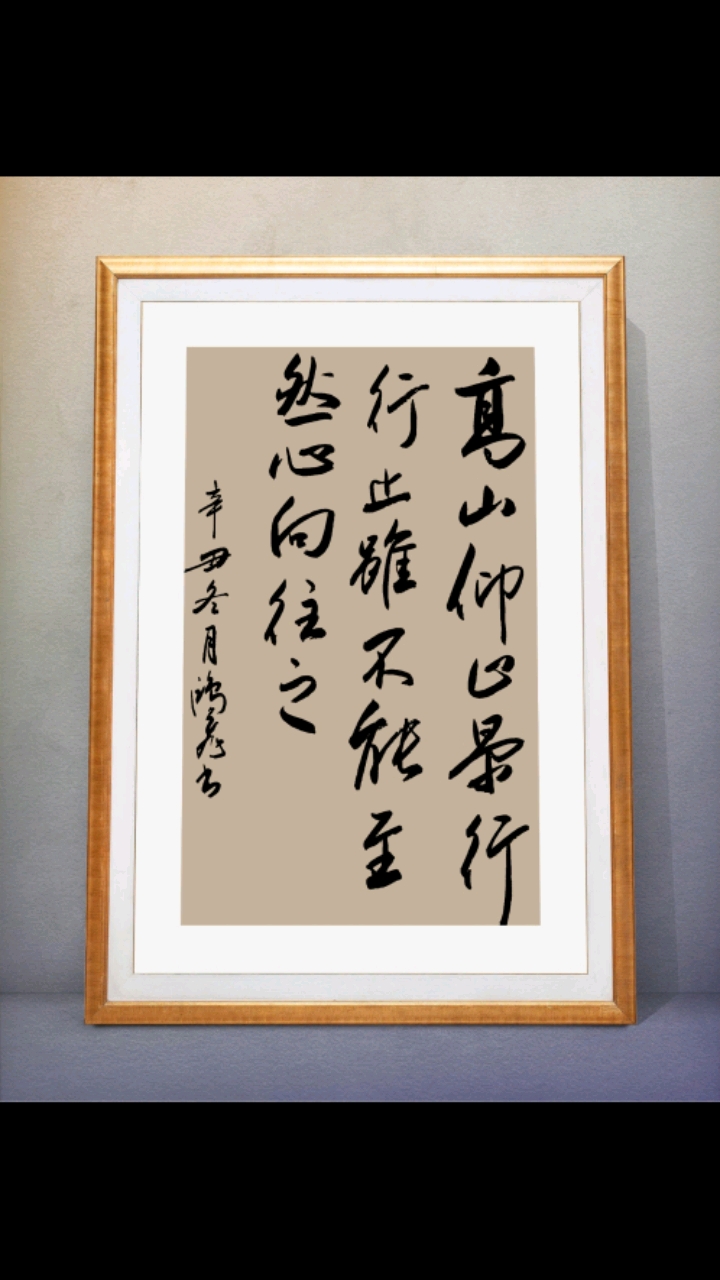 高山仰止景行
行止雖不能至
然心向往之
辛丑冬月鴻彦书